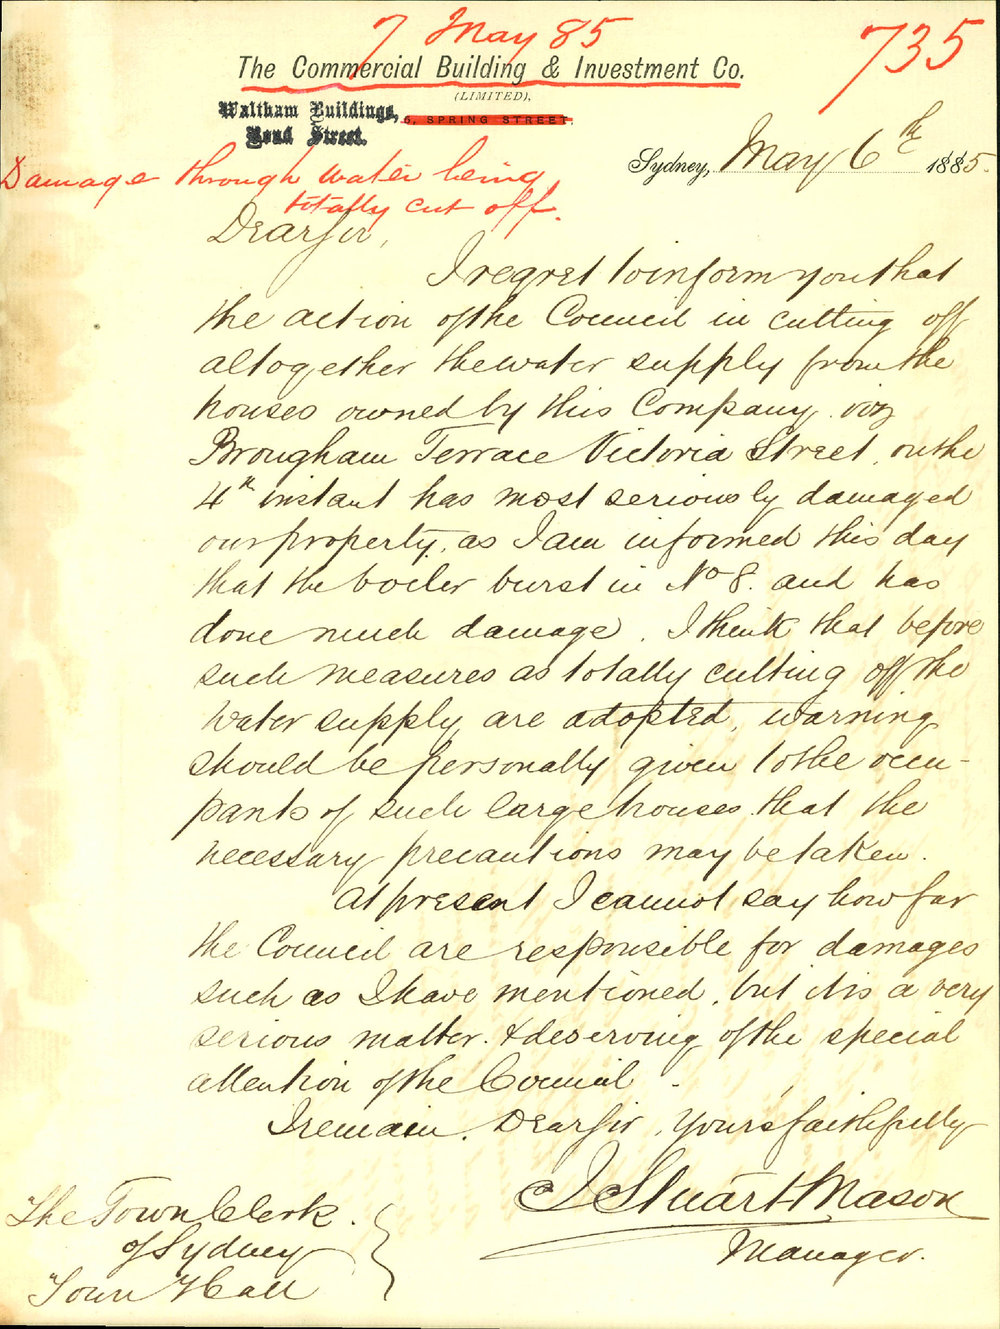 7 May 85
735
The Commercial Building & Investment Co.
(LIMITED),
Waltham Buildings,
Bond Street.
5, SPRING STREET,
Sydney, May 6th 1885.
Damage through water being
totally cut off.
Dear Sir,
I regret to inform you that
the action of the Council in cutting off
altogether the water supply from the
houses owned by this Company. viz
Brougham Terrace Victoria Street, on the
4th instant has most seriously damaged
our property, as I am informed this day
that the boiler burst in No 8. and has
done much damage. I think that before
such measures as totally cutting off the
water supply are adopted, warning
should be personally given to the occu-
pants of such large houses that the
necessary precautions may be taken.
At present I cannot say how far
the Council are responsible for damages
such as I have mentioned, but it is a very
serious matter. & deserving of the special
attention of the Council.
I remain. Dear Sir, Yours faithfully
J Stuart Mason
Manager.
The Town Clerk.
of Sydney
Town Hall